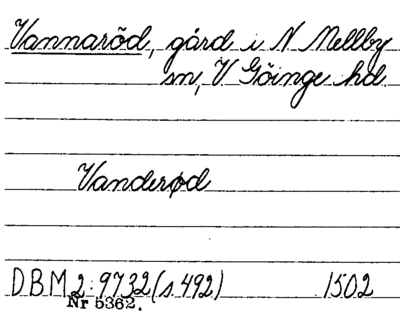 Vannaröd, gård i N Mellby
sn, V Göinge hd
Vanderød
DBM 2:9732 (s. 492) 1502
Nr 5362.